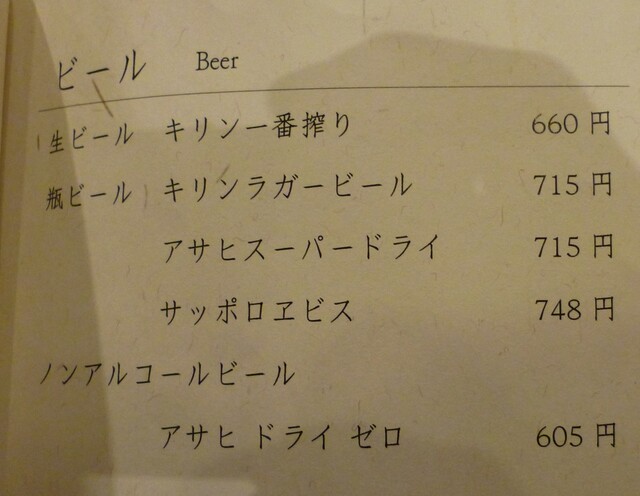 ビール Beer
生ビール キリン一番搾り 660 円
瓶ビール キリンラガービール 715 円
アサヒスーパードライ 715 円
サッポロヱビス 748 円
ノンアルコールビール
アサヒ ドライ ゼロ 605 円